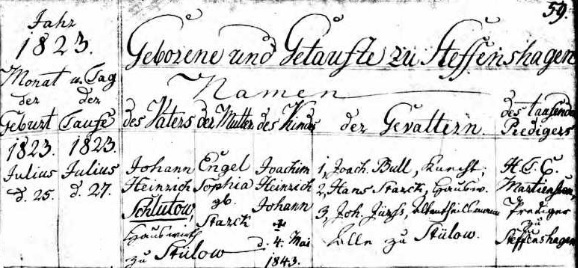 59.
Jahr
1823.
Geborene und Getaufte zu Steffenshagen
Monat u. Tag
der der
Geburt Taufe
Namen
des Vaters der Mutter des Kindes der Gevattern des taufenden
Predigers
1823. 1823.
Julius Julius
d. 25. d. 27.
Johann
Heinrich
Schlutow
Hauswirth
zu Stülow
Engel
Sophia
gb.
Starck
Joachim
Heinrich
Johann
d. 4. Mai
1843.
1, Joach. Bull, Knecht;
2, Hans Starck, Hausw.
3, Joh. Jürss,
alle zu Stülow.
H. T. C.
Martienssen,
Prediger
zu
Steffenshagen